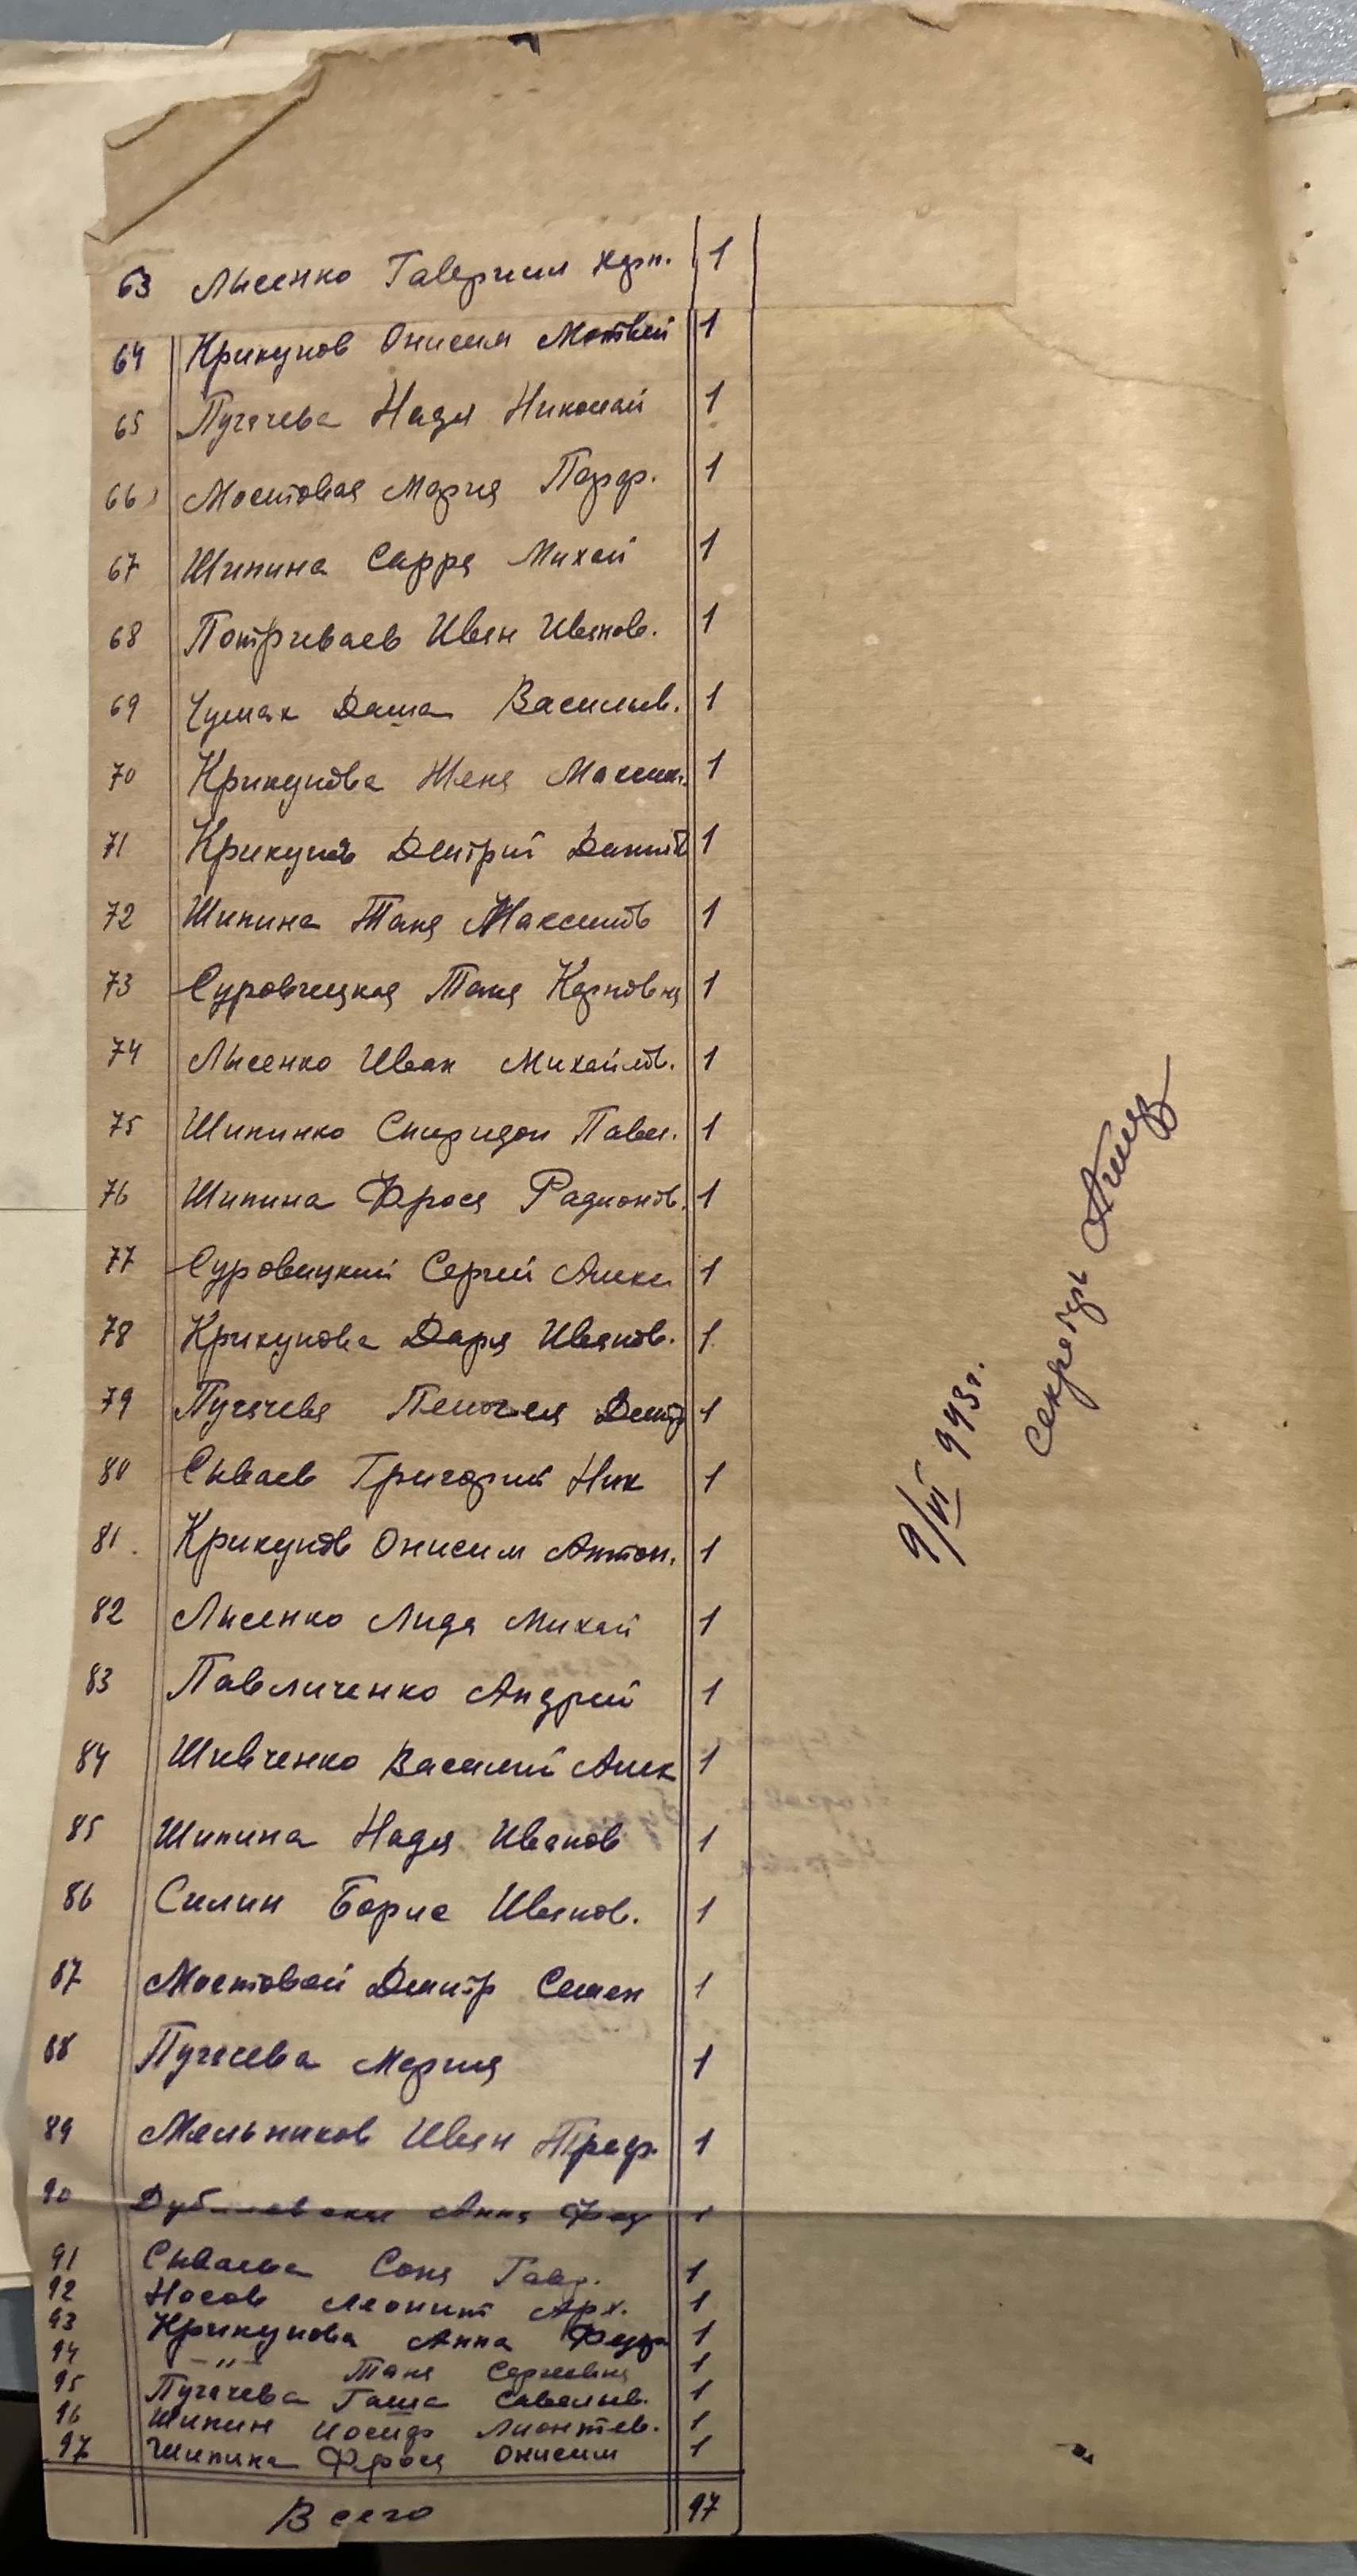 63 Лысенко Гавриил Карп. 1
64 Крикунов Онисим Матвей 1
65 Пугачева Надя Николай 1
66 Мостовая Мария Парф. 1
67 Шипина Сарра Михай 1
68 Потриваев Иван Иванов. 1
69 Чумак Даша Васильев. 1
70 Крикунова Женя Максим. 1
71 Крикунов Дмитрий Данил 1
72 Шипина Таня Максимов 1
73 Суровицкая Таня Карповна 1
74 Лысенко Иван Михайлов. 1
75 Шипинко Спиридон Павл. 1
76 Шипина Фрося Радионов. 1
77 Суровицкий Сергей Алекс 1
78 Крикунова Даря Иванов. 1
79 Пугачева Дмит 1
80 Сываев Григорий Ник 1
81. Крикунов Онисим Антон. 1
82 Лысенко Лида Михай 1
83 Павличенко Андрей 1
84 Шивченко Василий Алек 1
85 Шипина Надя Иванов 1
86 Силин Борис Иванов. 1
87 Мостовой Дмитр Семен 1
88 Пугачева Мария 1
89 Мельников Иван Троф. 1
90 Анна Фед 1
91 Сываева Соня Гавр. 1
92 Носов Леонит Арх. 1
93 Крикунова Анна Федор 1
94 -"- Таня Сергеевна 1
95 Пугачева Гаша Савельев. 1
96 Шипин Иосиф Лионтев. 1
97 Шипина Фрося Онисим 1
Всего 97
9/VI 943 г.
Секретарь